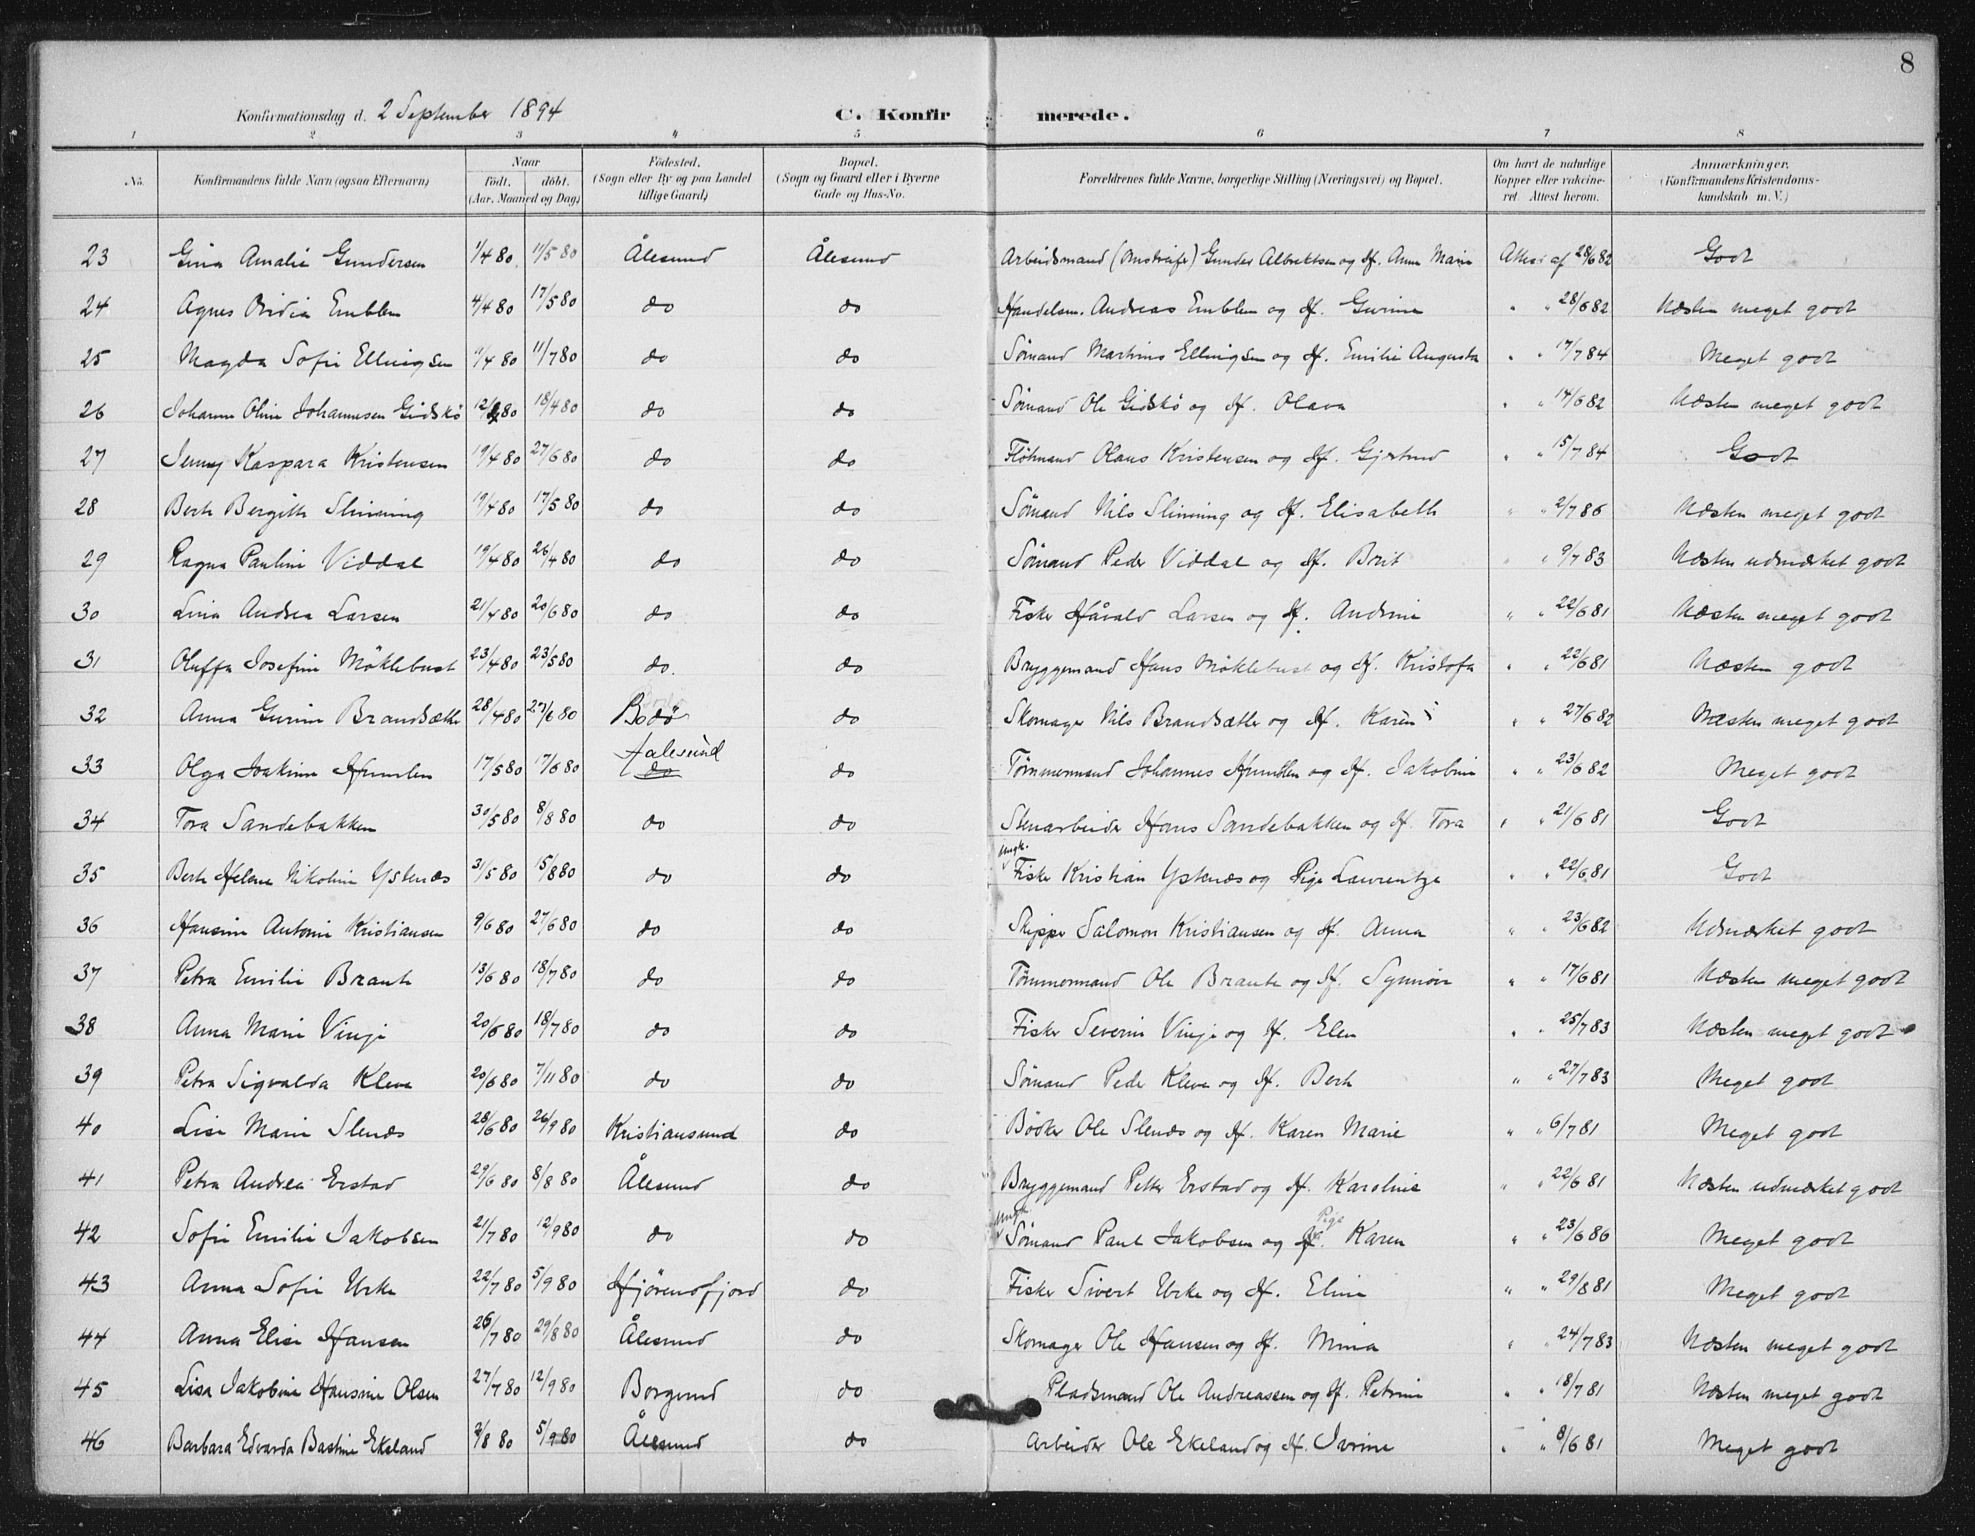 8
Konfirmationsdag d. 2 September 1894 C. Konfirmerede.
1 2 3 4 5 6 7 8
No. Konfirmandens fulde Navn (ogsaa Efternavn) Naar født. døbt. (Aar, Maaned og Dag) Fødested. (Sogn eller By og paa Landet tillige Gaard) Bopæl. (Sogn og Gaard eller i Byerne Gade og Hus-No. Forældrenes fulde Navne, borgerlige Stilling (Næringsvei) og Bopæl. Om havt de naturlige Kopper eller vakcineret Attest herom. Anmærkninger. (Konfirmandens Kristendomskundskab m. V.)
23 Gina Amalie Gundersen 1/4 80 11/5 80 Ålesund Ålesund Arbeidsmand Gunder Albrektsen og Hf. Anne Marie Attest af 28/6 82 Godt
24 Agnes Emblem 4/4 80 17/5 80 do do Handelsm. Andreas Emblem og Hf. Gurine " " 28/6 82 Næsten meget godt
25 Magda Sofie Ellingsen 9/4 80 11/7 80 do do Sømand Martinus Ellingsen og Hf. Emilie Augusta " " 17/7 84 Meget godt
26 Johanne Oline Johannesen Gidskö 12/4 80 18/4 80 do do Sømand Ole Gidskö og Hf. Olava " " 14/6 82 Næsten meget godt
27 Jenny Kaspara Kristensen 19/4 80 27/6 80 do do Fløtmand Olaus Kristensen og Hf. Gjertrud " " 15/7 84 Godt
28 Berte Bergitte Slinning 19/4 80 17/5 80 do do Sømand Nils Slinning og Hf. Elisabeth " " 2/7 86 Næsten meget godt
29 Ragna Pauline Viddal 19/4 80 26/4 80 do do Sømand Peder Viddal og Hf. Brit " " 9/7 83 Næsten udmærket godt
30 Lina Andrea Larsen 21/4 80 20/6 80 do do Fisker Håvald Larsen og Hf. Andrine " " 22/6 81 Næsten meget godt
31 Oluffa Josefine Möklebust 23/4 80 23/5 80 do. do Bryggemand Hans Möklebust og Hf. Kristofa " " 22/6 81 Næsten godt
32 Anna Gurine Brandsætte 28/4 80 27/6 80 Bodø do Skomager Nils Brandsætte og Hf. Karen " " 27/6 82 Næsten meget godt
33 Olga Joakime Humlen 17/5 80 17/6 80 Aalesund do do Tømmermand Johannes Humlen og Hf. Jakobine " " 23/6 82 Meget godt
34 Tora Sandebakken 30/5 80 8/8 80 do do Stenarbeider Hans Sandebakken og Hf. Tora " " 21/6 81 Godt
35 Berte Helene Nikoline Ystenæs 31/5 80 15/8 80 do do Ungk. Fisker Kristian Ystenæs og Pige Laurentze " " 22/6 81 Godt
36 Hansine Antonie Kristiansen 9/6 80 27/6 80 do do Skipper Salomon Kristiansen og Hf. Anna " " 23/6 82 Udmærket godt
37 Petra Emilie Braute 13/6 80 18/7 80 do do Tømmermand Ole Braute og Hf. Synnöve " " 17/6 81 Næsten meget godt
38 Anna Marie Vinje 20/6 80 18/7 80 do do Fisker Severin Vinje og Hf. Elen " " 25/7 83 Næsten meget godt
39 Petra Sigvalda Kleve 20/6 80 7/11 80 do do Sømand Peder Kleve og Hf. Berte " " 27/7 83 Meget godt
40 Lise Marie Slenæs 28/6 80 26/9 80 Kristiansund do Bødker Ole Slenæs og Hf. Karen Marie " " 6/7 81 Meget godt
41 Petra Andrea Erstad 29/6 80 8/8 80 Ålesund do Bryggemand Petter Erstad og Hf. Karoline " " 22/6 81 Næsten udmærket godt
42 Sofie Emilie Jakobsen 21/7 80 12/9 80 do do Ungk. Sømand Paul Jakobsen og Hf. Pige Karen " " 23/6 86 Meget godt
43 Anna Sofie Urke 22/7 80 5/9 80 Hjørendfjord do Fisker Sivert Urke og Hf. Eline " " 29/8 81 Meget godt
44 Anna Elise Hansen 26/7 80 29/8 80 Ålesund do Skomager Ole Hansen og Hf. Mina " " 24/7 83 Næsten meget godt
45 Lisa Jakobine Hansine Olsen 27/7 80 12/9 80 Borgund do Pladsmand Ole Andreassen og Hf. Petrine " " 18/7 81 Næsten meget godt
46 Barbara Edvarda Bastine Ekeland 2/8 80 5/9 80 Ålesund do Arbeider Ole Ekeland og Hf. Ivrine " " 8/6 81 Meget godt